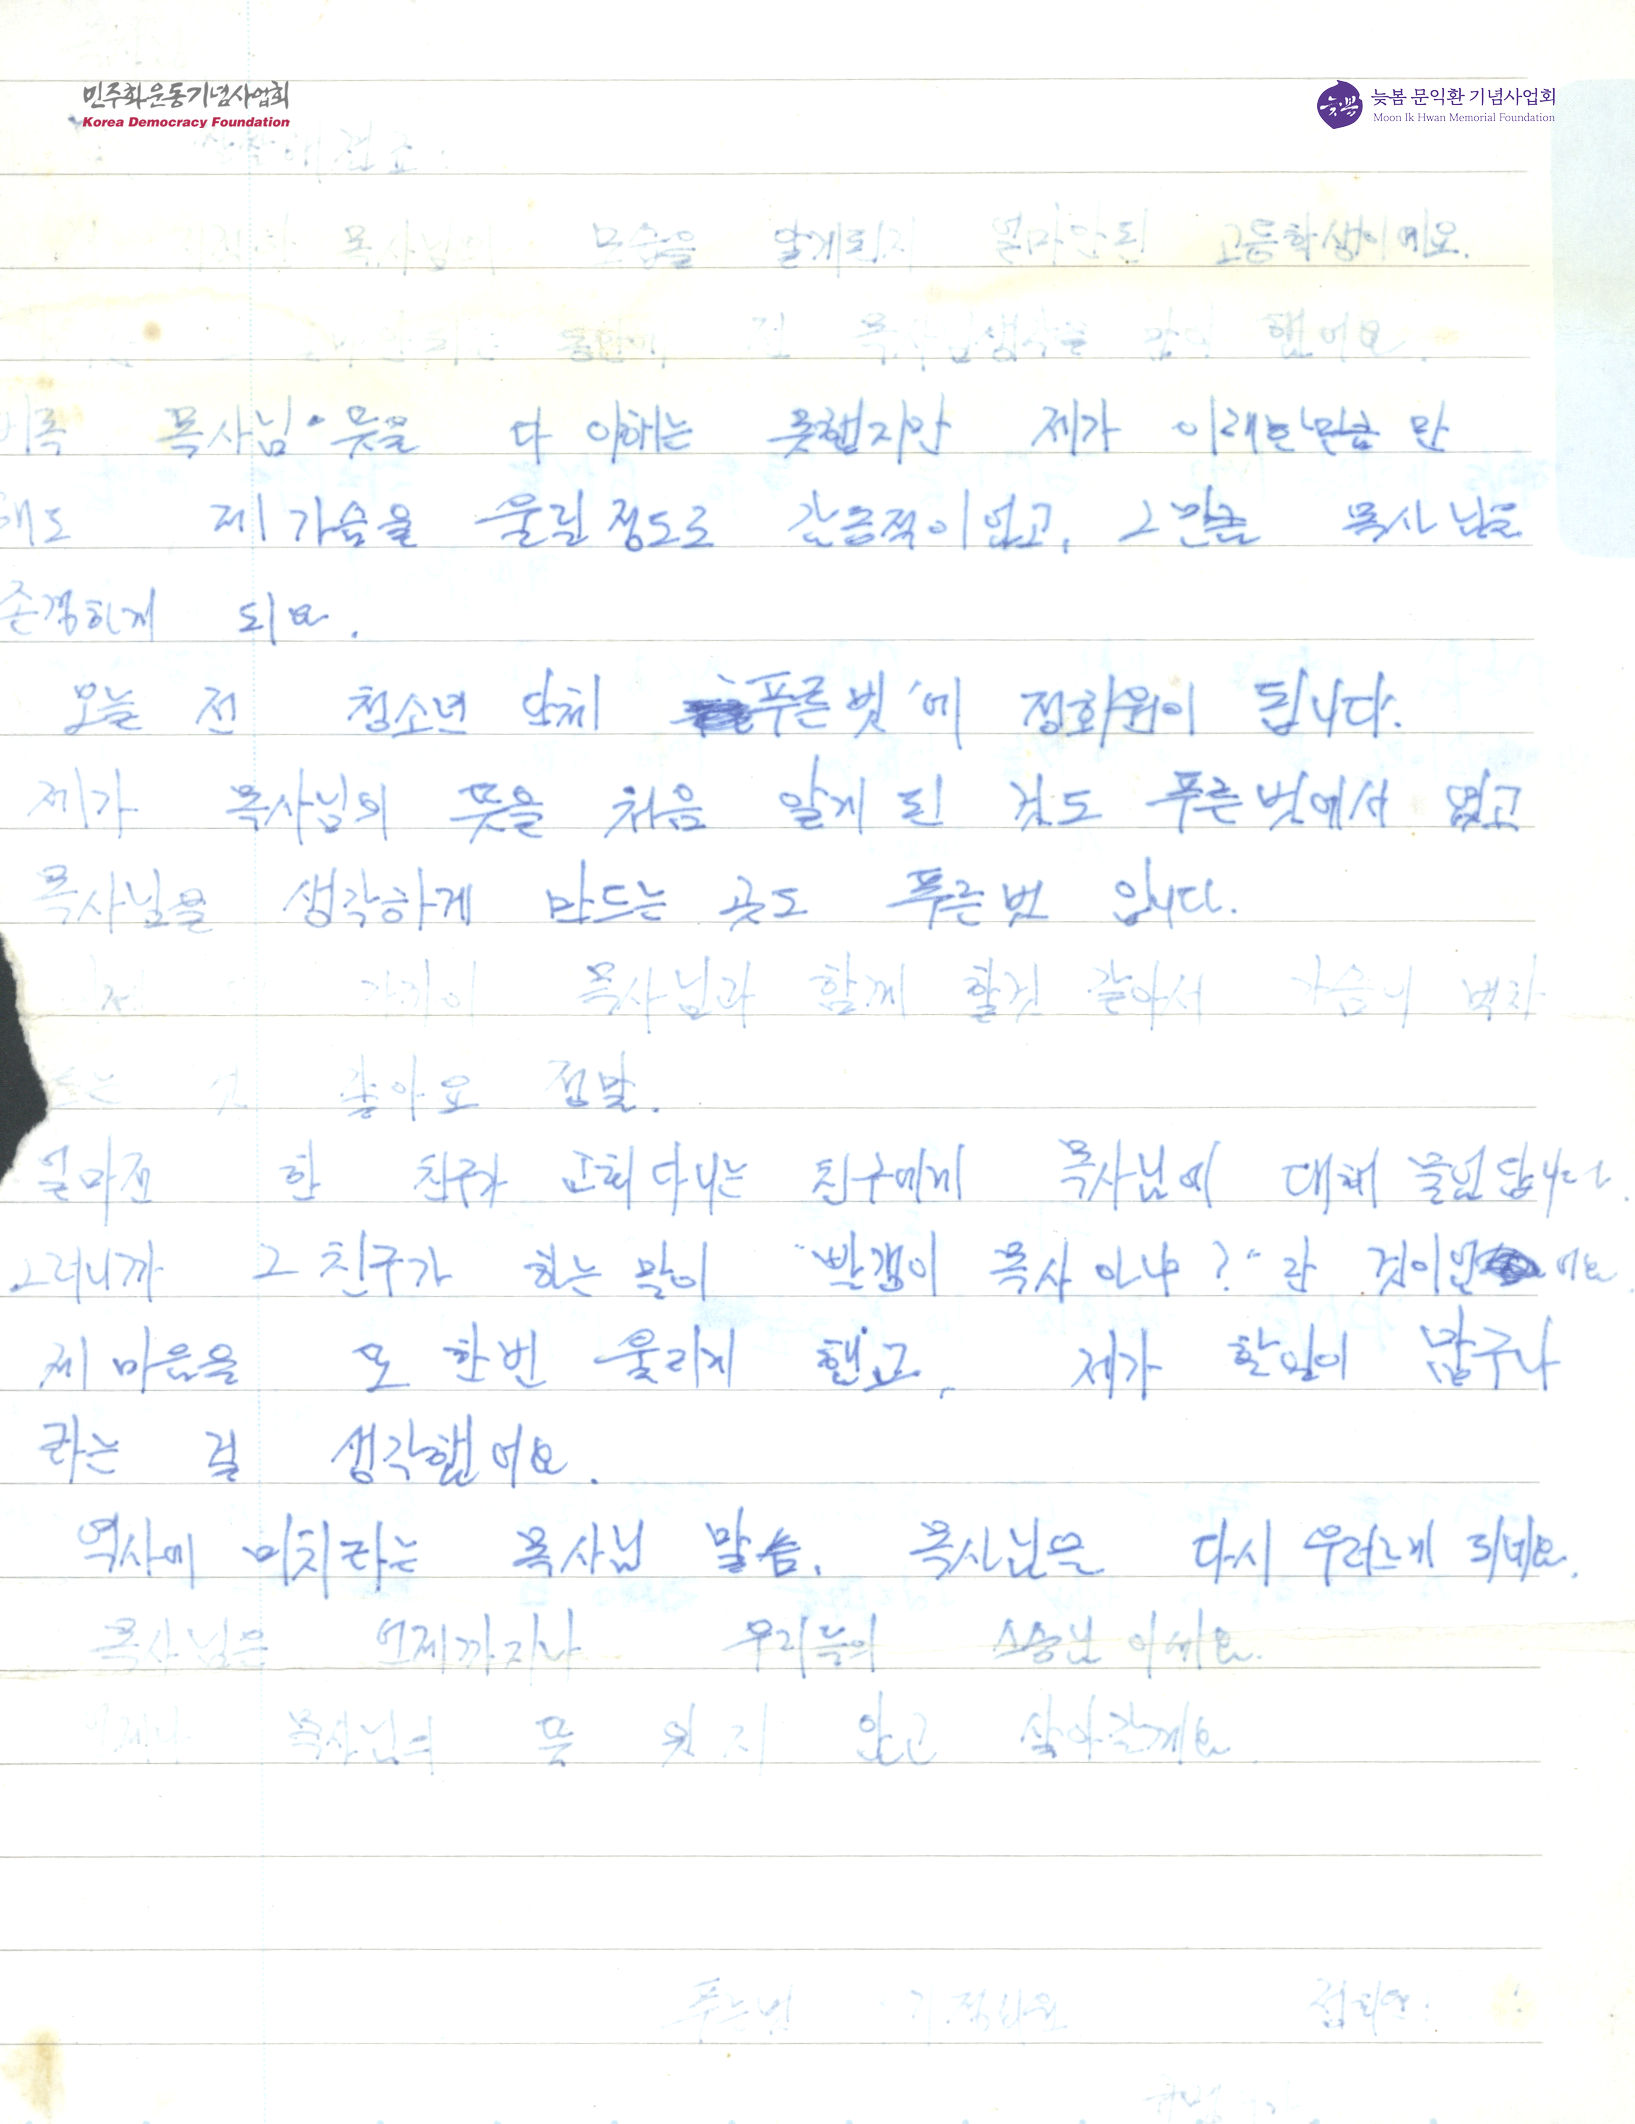 민주화운동기념사업회
Korea Democracy Foundation
늦봄
늦봄 문익환 기념사업회
Moon Ik Hwan Memorial Foundation
목사님의 모습을 알게된지 얼마안된 고등학생이에요.
동안에, 전 목사님생각을 많이 했어요.
비록 목사님 뜻을 다 이해는 못했지만 제가 이해한만큼 만
해도 제 가슴을 울릴 정도로 감금적이었고, 그만큼 목사님을
존경하게 되요.
오늘 전 청소년 단체 푸른벗'에 정회원이 됩니다.
제가 목사님의 뜻을 처음 알게 된 것도 푸른벗에서 였고
목사님을 생각하게 만드는 곳도 푸른벗 입니다.
목사님과 함께 할것 같아서 가슴이 벅차
좋아요 정말.
얼마전 한 친구가 교회다니는 친구에게 목사님에 대해 물었답니다.
그러니까 그 친구가 하는 말이 "빨갱이 목사 아냐?"란 것이었 에요.
제 마음을 또 한번 울리게 했고, 제가 할일이 많구나
라는 걸 생각했어요.
역사에 미치라는 목사님 말씀. 목사님을 다시 우러르게 되네요.
목사님은 언제까지나 우리들의 스승님 이세요.
언제나 목사님의 뜻 잊지 않고 살아갈게요.
푸른벗